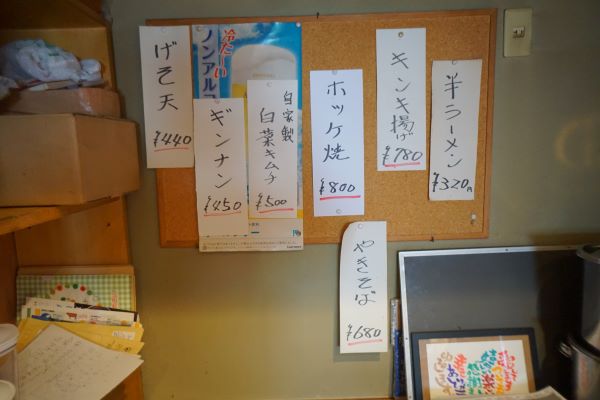 げそ天
¥440
冷た〜い
ノンアルコ
ギンナン
¥450
自家製
白菜キムチ
¥500
ホッケ焼
¥800
キンキ揚げ
¥780
半ラーメン
¥320円
やきそば
¥680